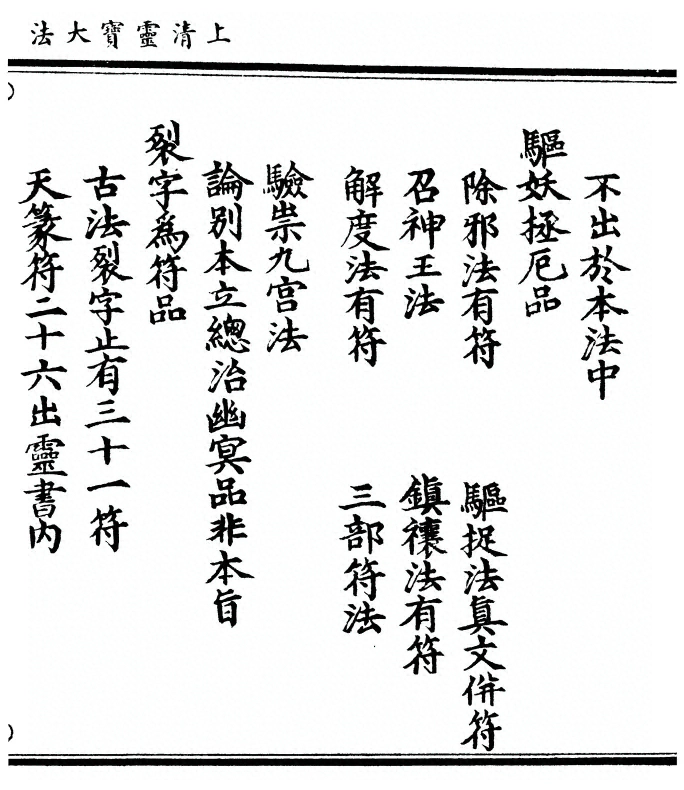 上清靈寶大法
不出於本法中
驅妖拯厄品
除邪法有符　驅捉法真文併符
召神王法　鎮禳法有符
解度法有符　三部符法
驗祟九宮法
論別本立總治幽冥品非本旨
裂字爲符品
古法裂字止有三十一符
天篆符二十六出靈書內